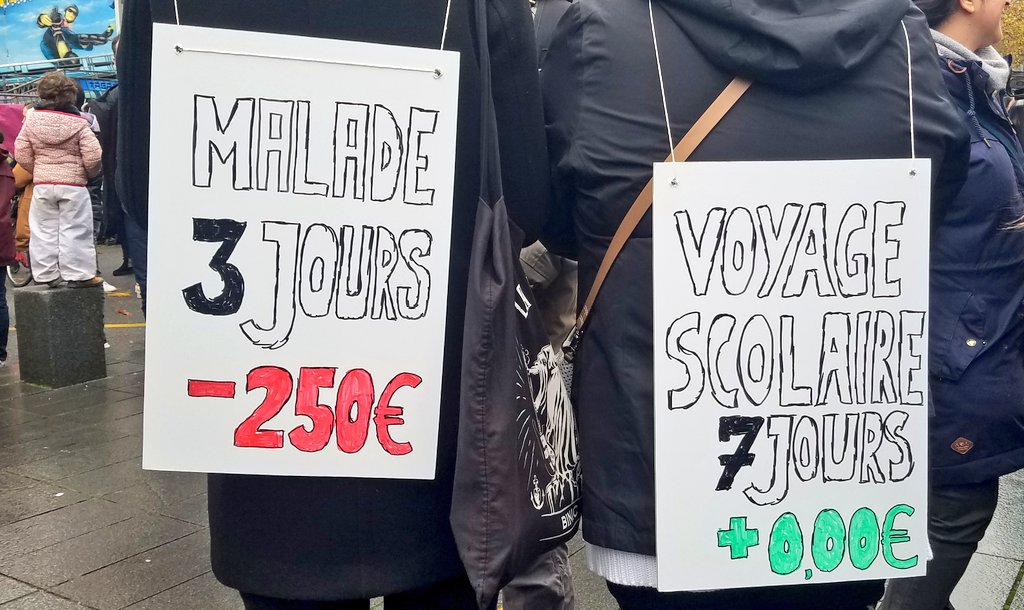 MALADE
3 JOURS
-250€
VOYAGE
SCOLAIRE
7 JOURS
+0,00€